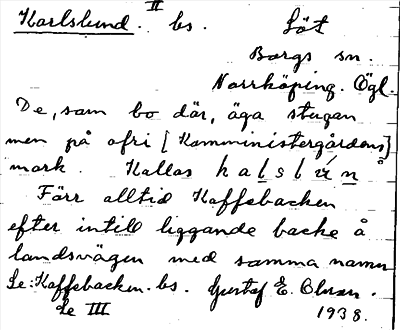 Karlslund. II bs. Löt
Borgs sn.
Norrköping. Ögl.
De, som bo där, äga stugan
men på ofri [Komministergårdens]
mark. Kallas
Förr alltid Kaffebacken
efter intill liggande backe å
landsvägen med samma namn
Se: Kaffebacken. bs. Gustaf E. Olsson.
Se III 1938.